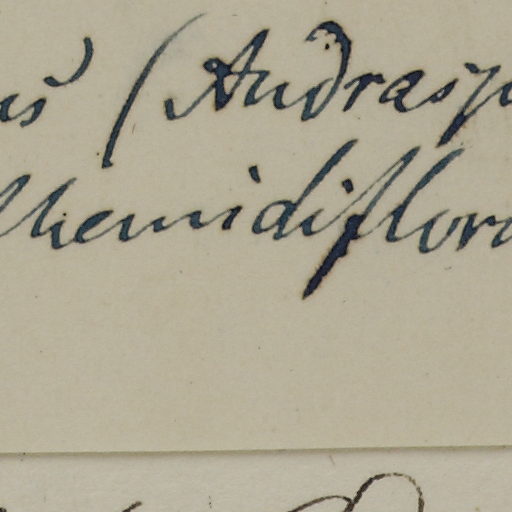 us (Andrasp
themidiflora